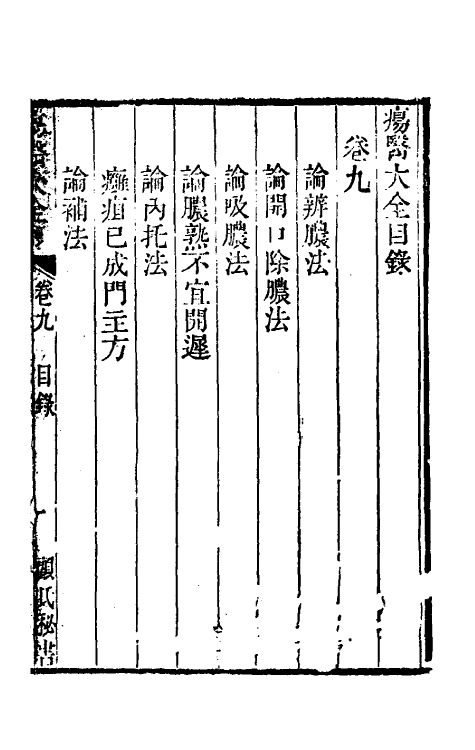 瘍醫大全目錄
卷九
論辨膿法
論開口除膿法
論吸膿法
論膿熟不宜開遲
論內托法
癰疽已成門主方
論補法
瘍醫大全 卷九 目錄 一 顧氏秘書